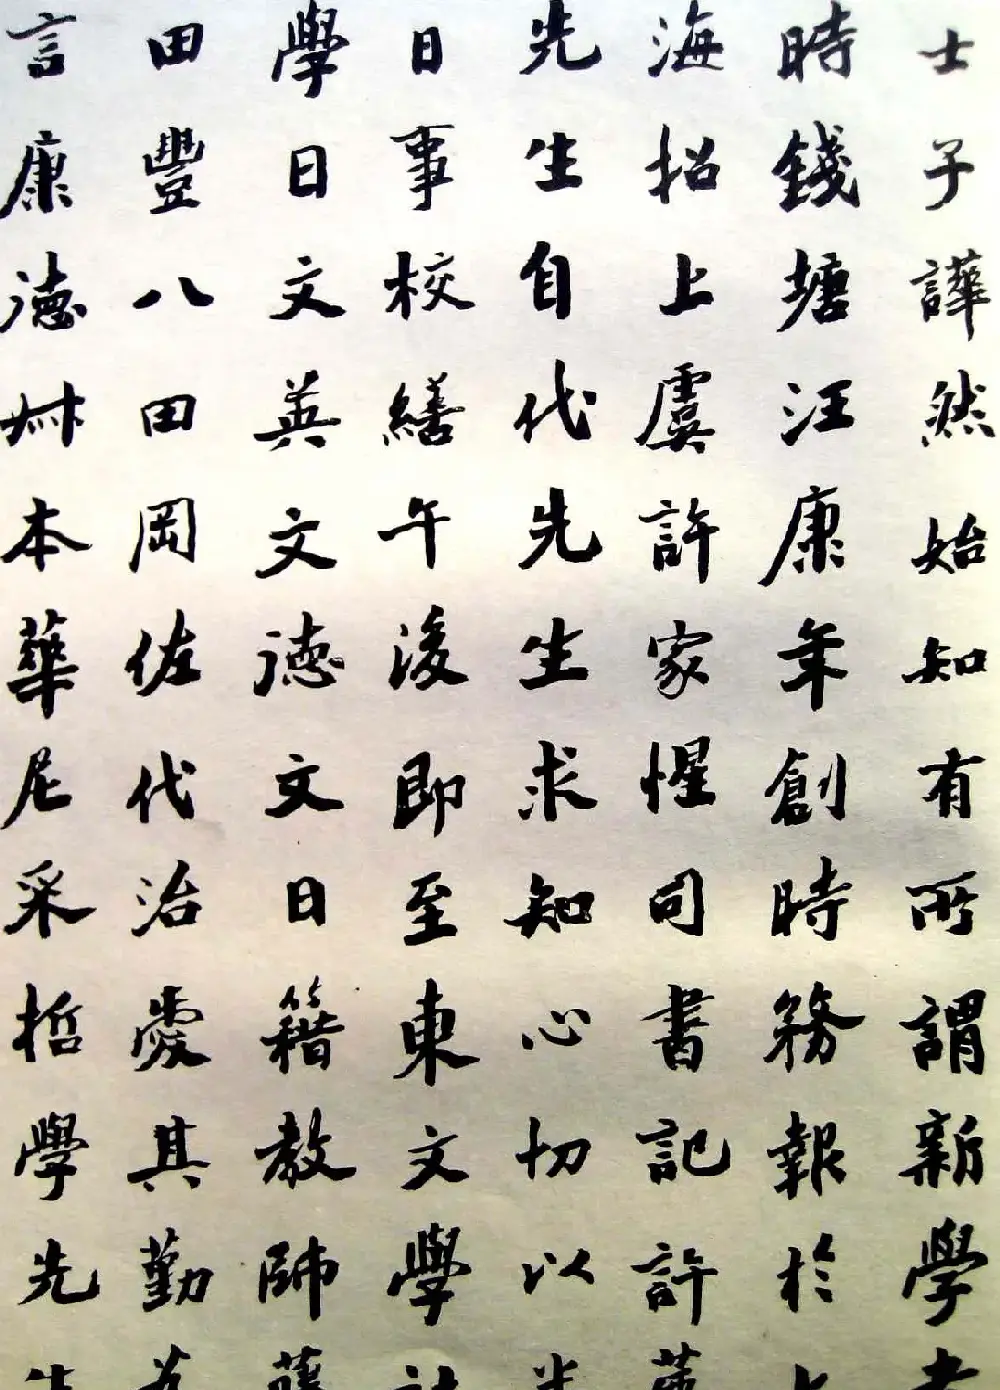 士子譁然始知有所謂新學者
時錢塘汪康年創時務報於上
海招上虞許家惺司書記許
先生自代先生求知心切以
日事校繕午後即至東文學社
學日文英文德文日籍教師藤
田豐八田岡佐代治愛其勤
言康德叔本華尼采哲學先生